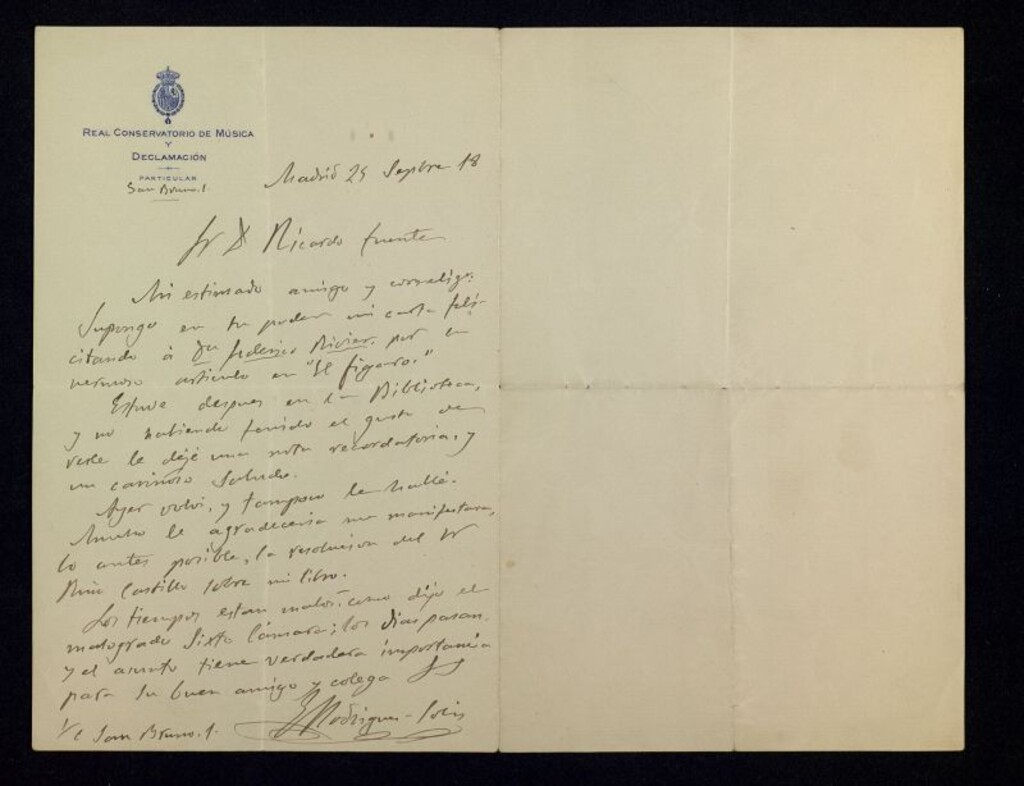 REAL CONSERVATORIO DE MÚSICA
Y
DECLAMACIÓN
PARTICULAR
San Bruno. 1.
Madrid 25 Sepbre 18
Sr D Ricardo Fuente
Mi estimado amigo y correlig:
Supongo en tu poder mi carta feli-
citando á Federico por su
hermoso artículo en "El Figaro."
Estuve despues en la Biblioteca,
y no habiendo tenido el gusto de
verle le dejé una nota recordatoria, y
un cariñoso saludo.
Ayer volví, y tampoco le hallé.
Mucho le agradeceria me manifestara,
lo antes posible, la resolucion del Sr
Ruiz Castillo sobre mi libro.
Los tiempos estan malos: como dijo el
malogrado Sixto Cámara; los dias pasan,
y el asunto tiene verdadera importancia
para su buen amigo y colega
E Rodriguez-Solis
S/c San Bruno. 1.